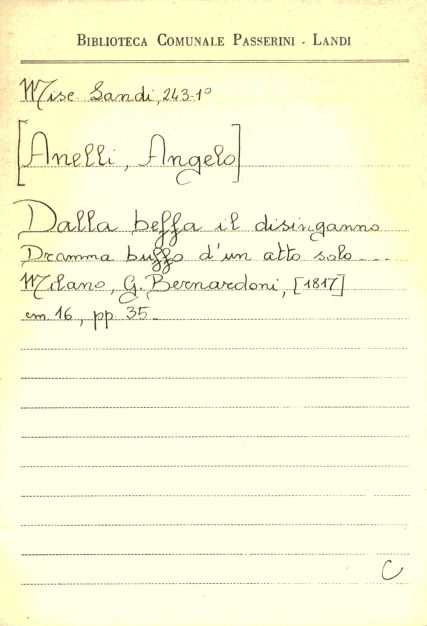 BIBLIOTECA COMUNALE PASSERINI - LANDI
Misc. Landi, 243-1°
[Anelli, Angelo]
Dalla beffa il disinganno
Dramma buffo d'un atto solo....
Milano, G. Bernardoni, [1817]
cm. 16, pp. 35.
C